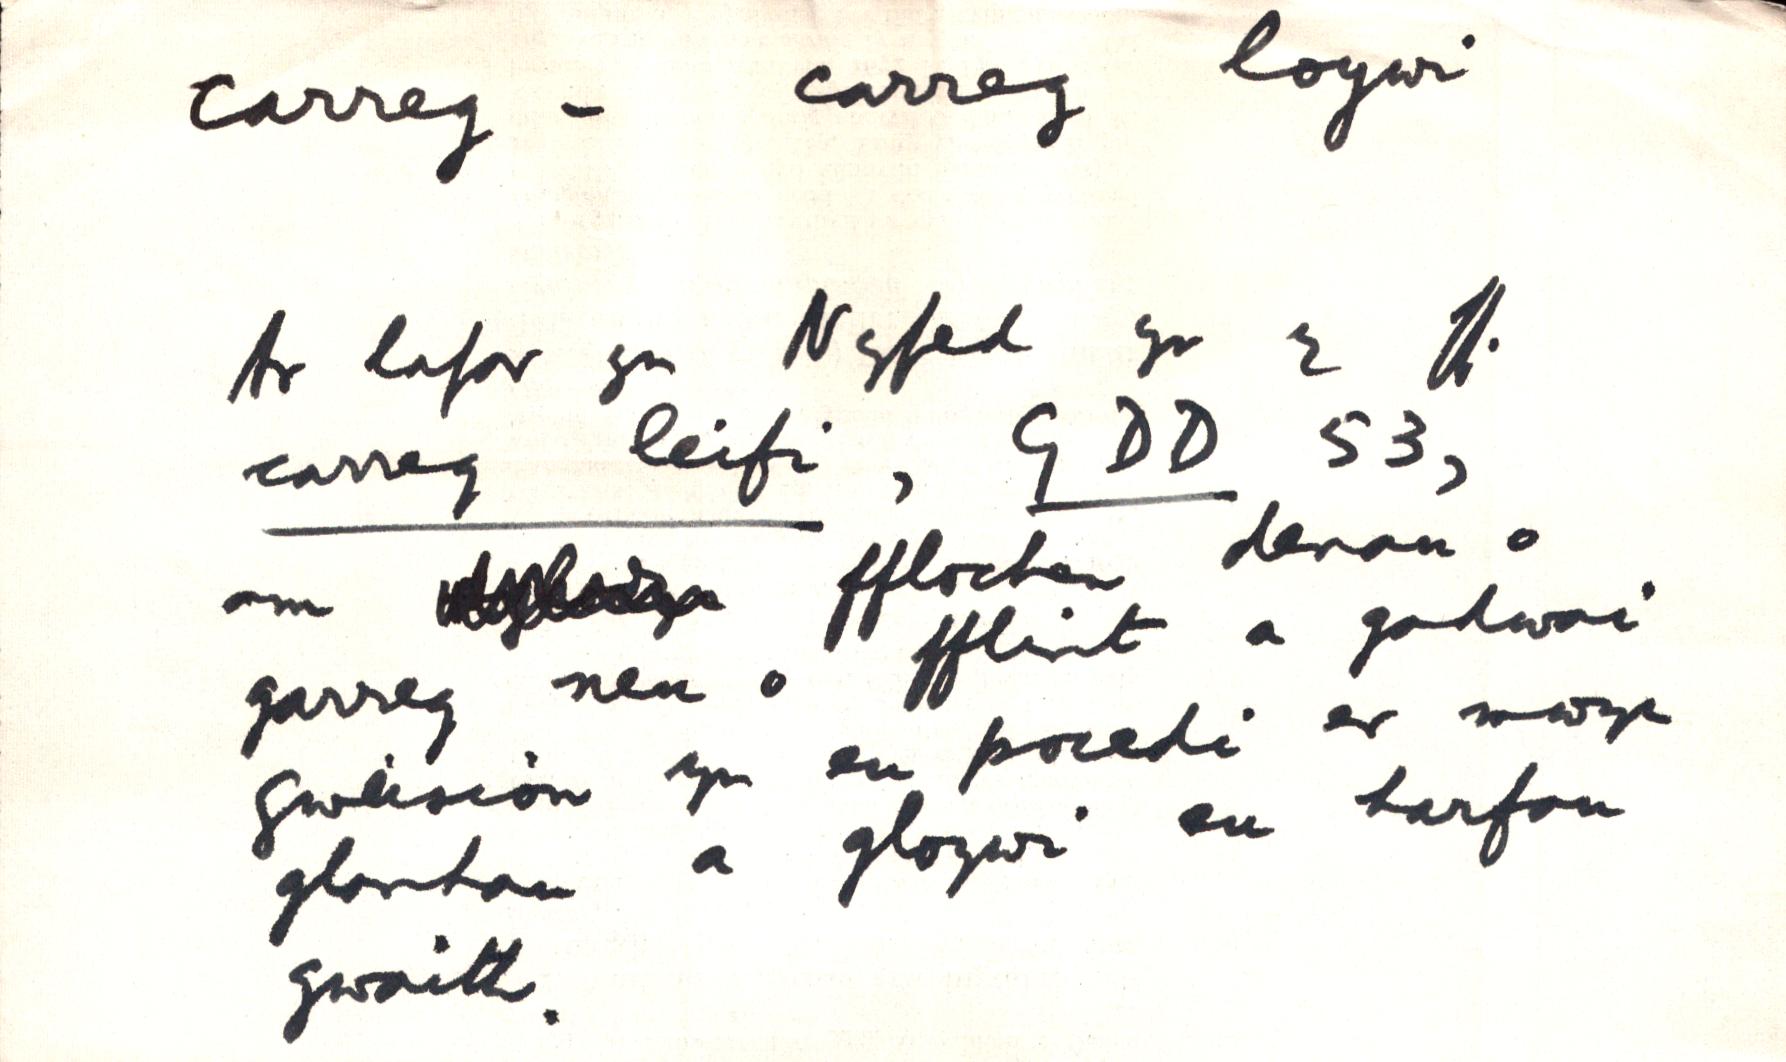 carreg - carreg loywi
Ar lafar yn Nyfed yn y ff.
carreg leifi, GDD 53,
am fflochen denau o
garreg neu o fflint a gadwai
gweision yn eu pocedi er mwyn
glanhau a gloywi eu harfau
gwaith.